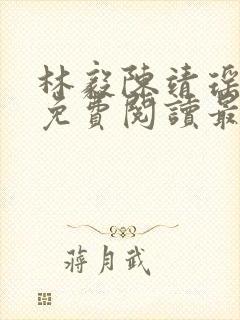 林毅陳靖瑶
免費閱讀最
蔣月武